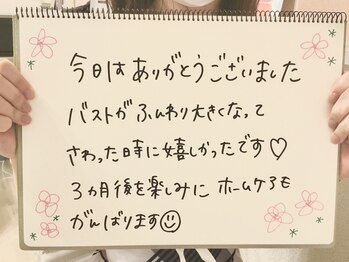 今日はありがとうございました
バストがふんわり大きくなって
さわった時に嬉しかったです♡
3ヵ月後を楽しみに ホームケアも
がんばります☺